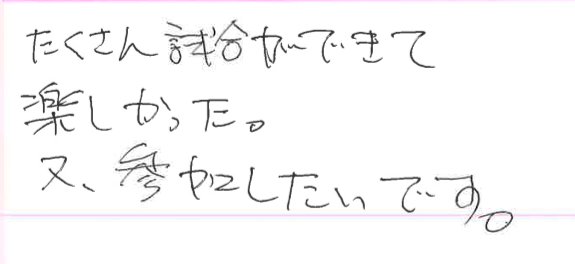 たくさん試合ができて
楽しかった。
又、参加したいです。